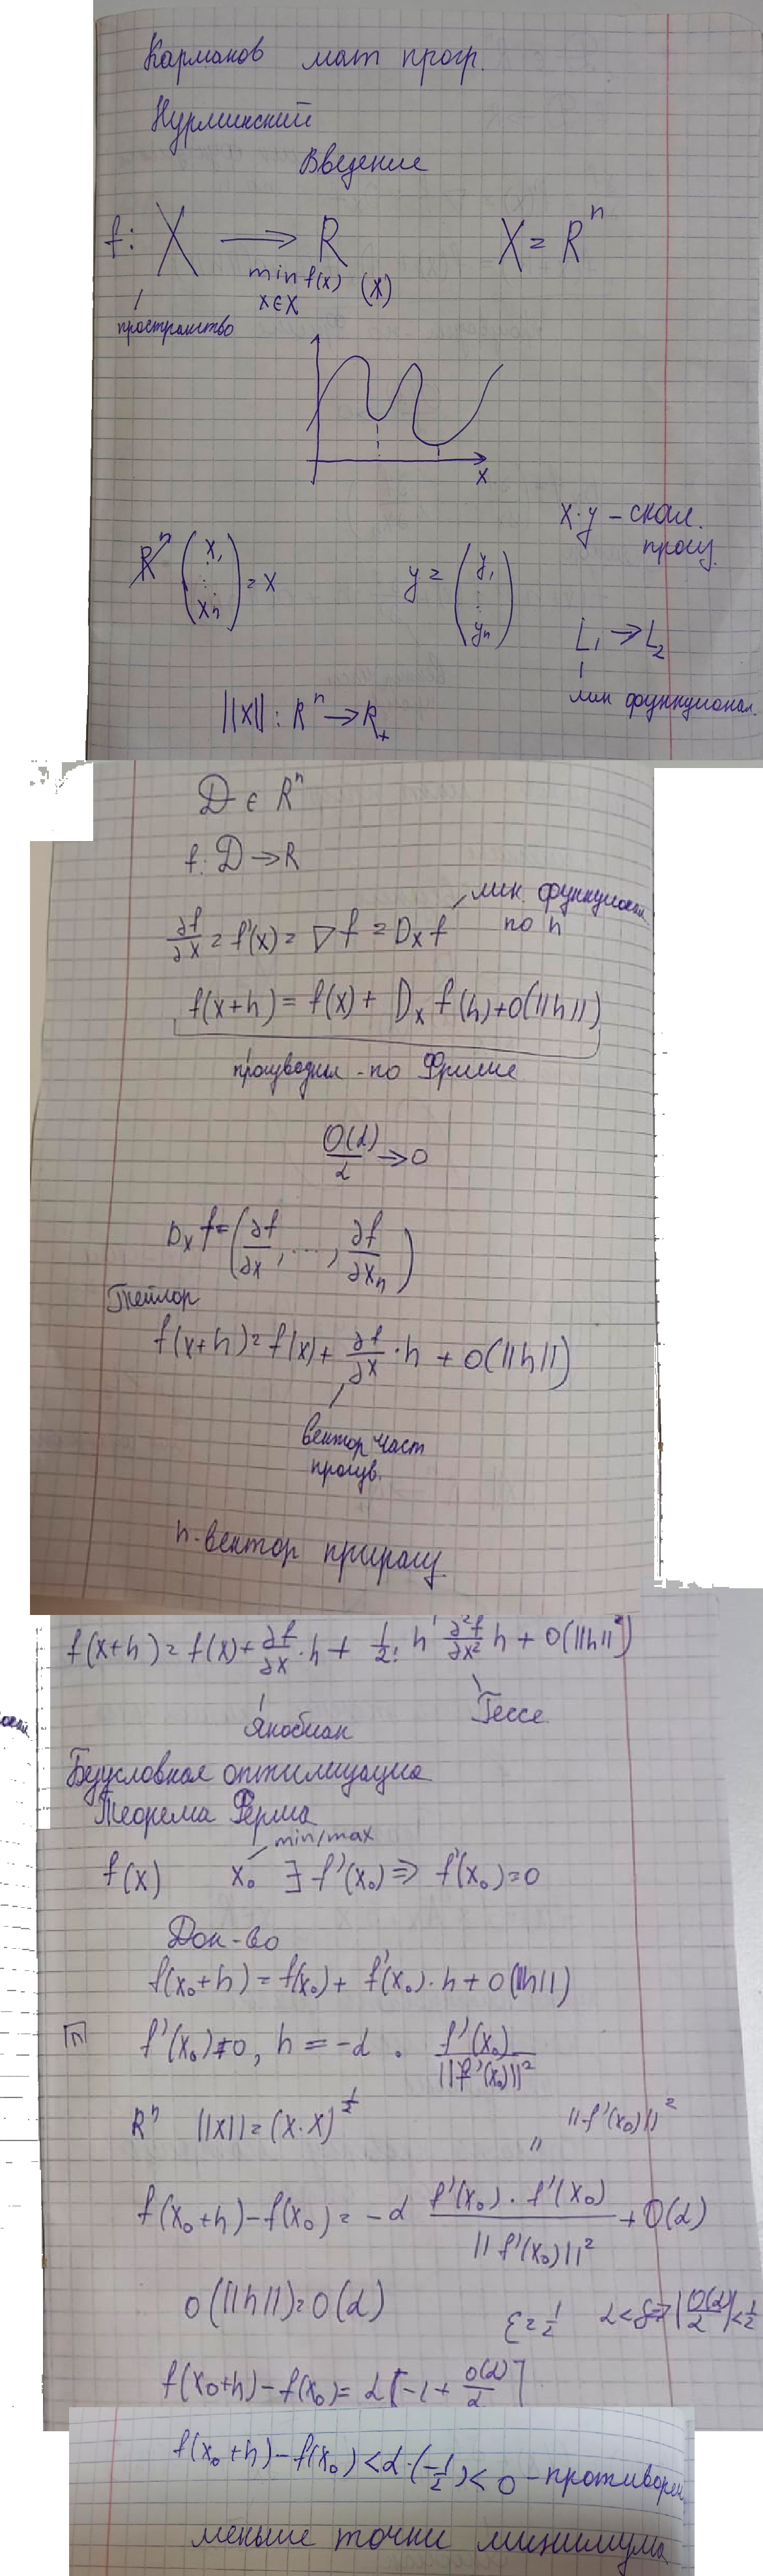 Карманов мат прогр.
Нурминский
Введение
f: X → R X = Rⁿ
min f(x) (X)
x∈X
пространство
x
x·y – скал.
произ.
Rⁿ (x₁ ⋮ xₙ) = x y = (y₁ ⋮ yₙ)
L₁ → L₂
лин функционал.
||x|| : Rⁿ → R₊
D ∈ Rⁿ
f: D → R
лин. функционал
∂f/∂x = f'(x) = ∇f = Dₓf по h
f(x+h) = f(x) + Dₓ f(h) + o(||h||)
производн - по Фреше
o(α)/α → 0
Dₓf = (∂f/∂x, ..., ∂f/∂xₙ)
Тейлор
f(x+h) = f(x) + ∂f/∂x · h + o(||h||)
вектор част
произв.
h - вектор приращ.
f(x+h) = f(x) + ∂f/∂x · h + 1/2! h' ∂²f/∂x² h + o(||h||²)
Якобиан Гессе
Безусловная оптимизация
Теорема Ферма
min/max
f(x) x₀ ∃ f'(x₀) ⇒ f'(x₀) = 0
Док-во
f(x₀+h) = f(x₀) + f'(x₀)·h + o(||h||)
П f'(x₀) ≠ 0, h = -α · f'(x₀)/||f'(x₀)||²
Rⁿ ||x|| = (x·x)^½ " ||f'(x₀)||²
f(x₀+h) - f(x₀) = -α f'(x₀)·f'(x₀)/||f'(x₀)||² + o(α)
o(||h||) = o(α) ε = 1/2 α < δ ⇒ |o(α)/α| < 1/2
f(x₀+h) - f(x₀) = α[-1 + o(α)/α]
f(x₀+h) - f(x₀) < α·(-1/2) < 0 - противореч
меньше точки минимума